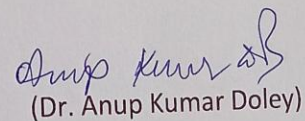 Anup Kumar
(Dr. Anup Kumar Doley)